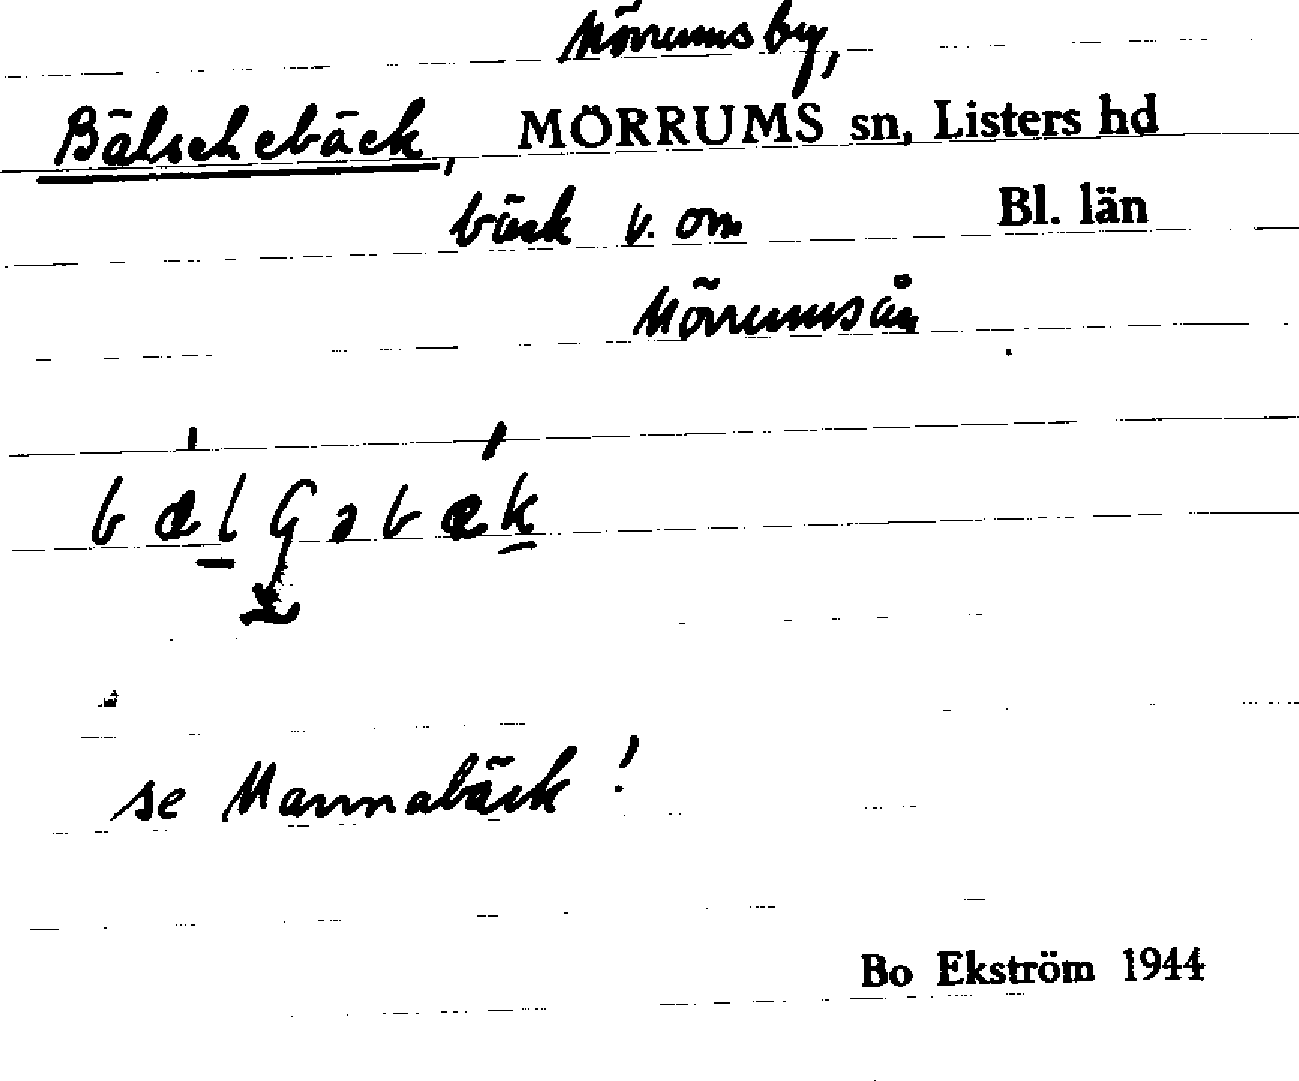 Mörrums by,
Bälschebäck, MÖRRUMS sn, Listers hd
bäck v. om Bl. län
Mörrumsån
se Mannabäck!
Bo Ekström 1944